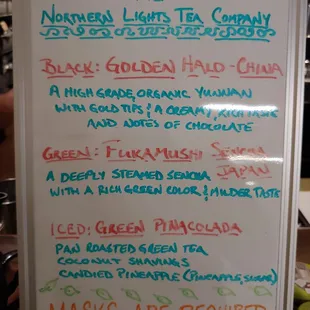 NORTHERN LIGHTS TEA COMPANY
BLACK: GOLDEN HALO - CHINA
A HIGH GRADE, ORGANIC YUNNAN
WITH GOLD TIPS & A CREAMY, RICH TASTE
AND NOTES OF CHOCOLATE
GREEN: FUKAMUSHI SENCHA
JAPAN
A DEEPLY STEAMED SENCHA
WITH A RICH GREEN COLOR & MILDER TASTE
ICED: GREEN PINACOLADA
PAN ROASTED GREEN TEA
COCONUT SHAVINGS
CANDIED PINEAPPLE (PINEAPPLE, SUGAR)
MASKS ARE REQUIRED